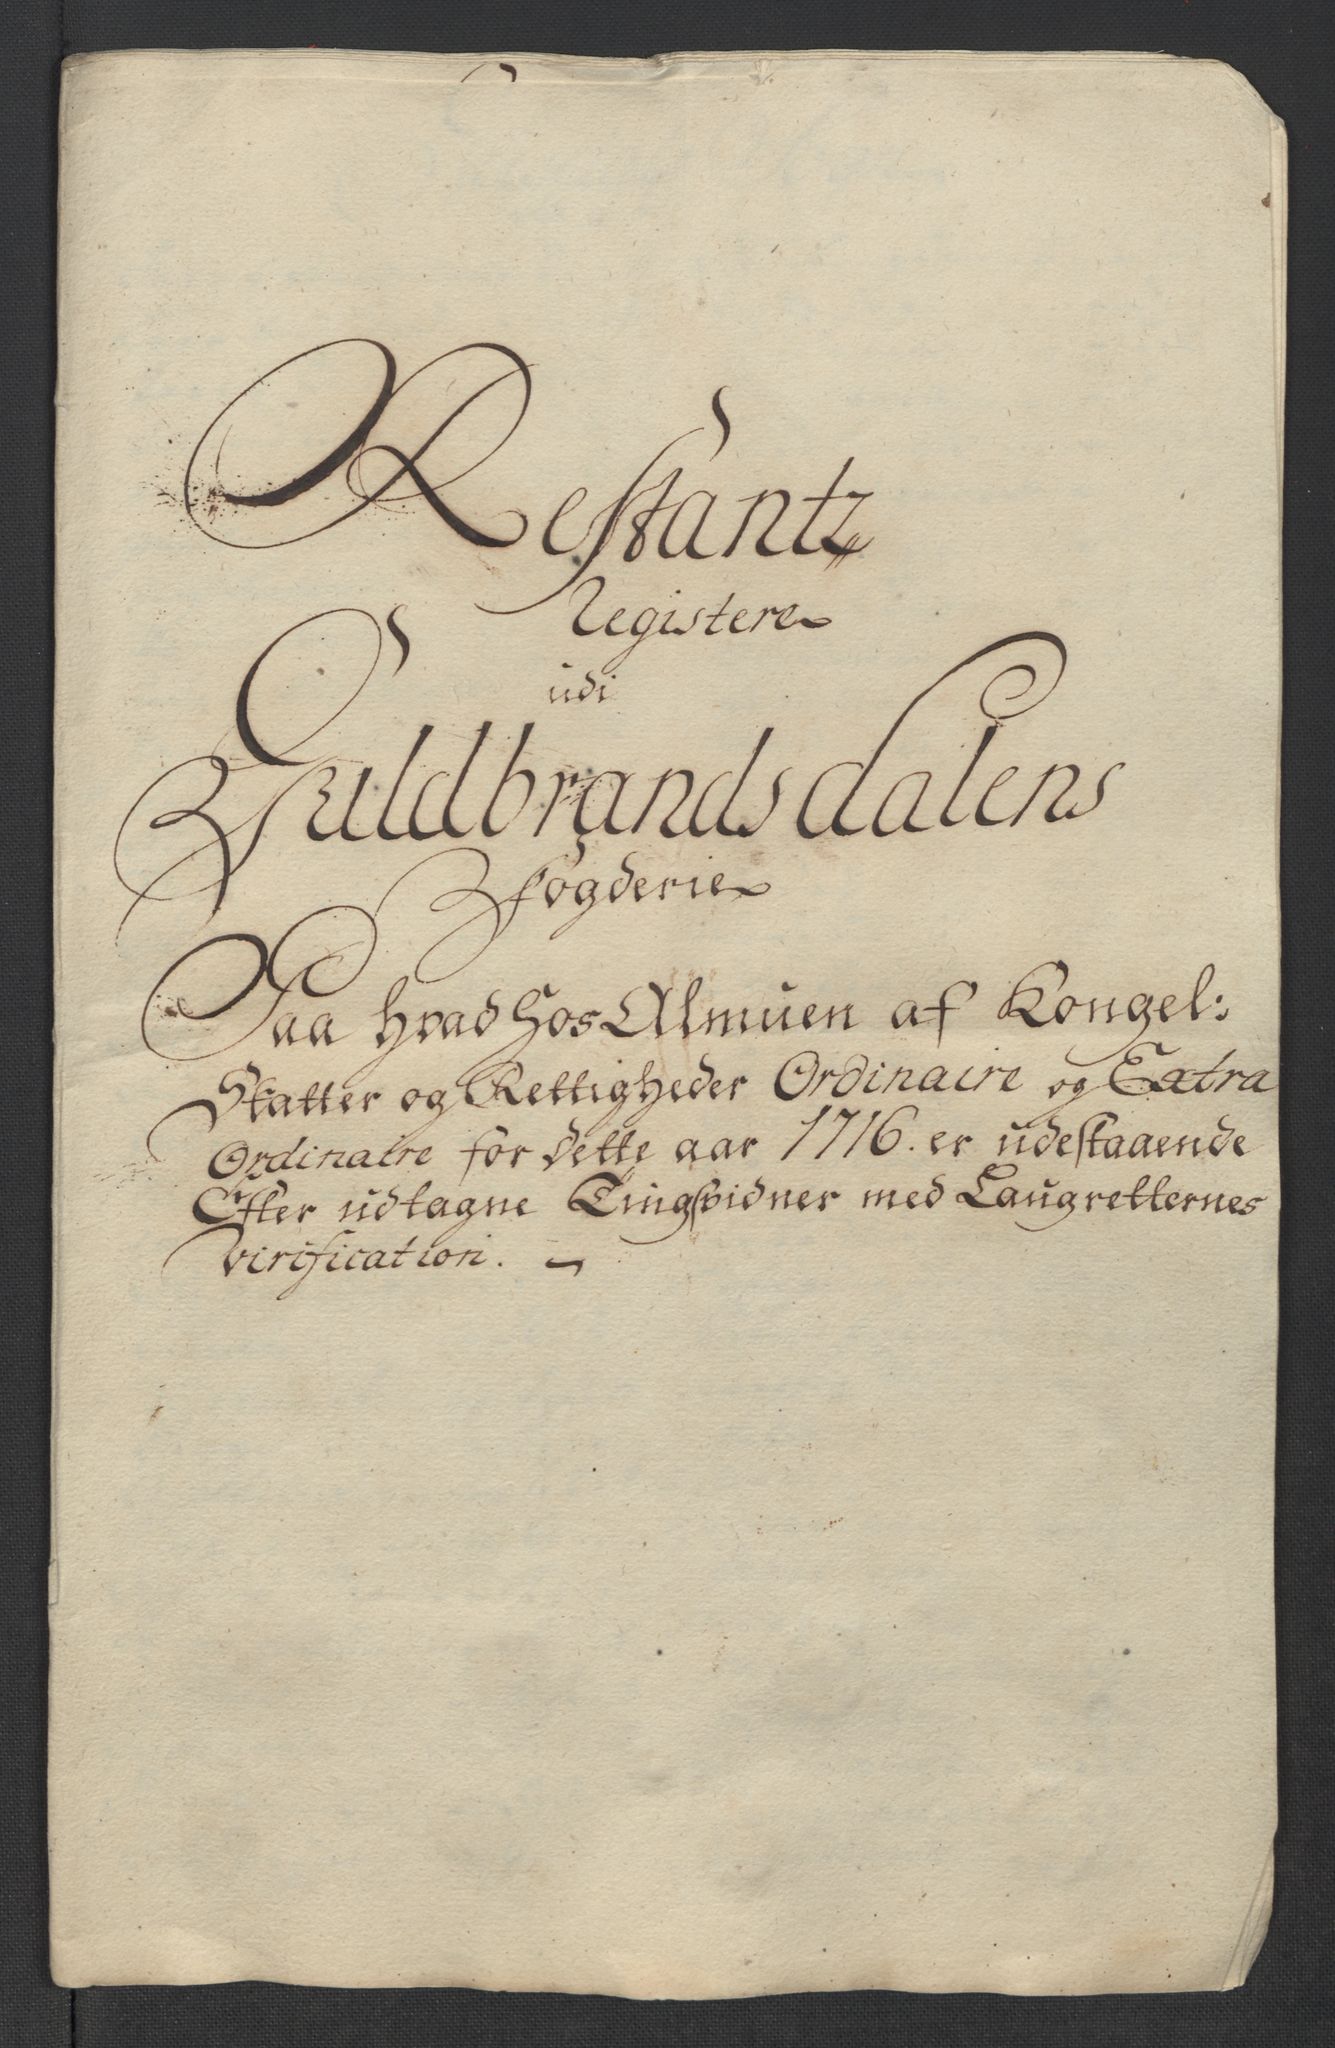 Restantz
Registere
udi
Guldbrandsdalens
Fogderie
Paa hvad hos Almuen af Kongel:
Skatter og Rettigheder Ordinaire og Extra
Ordinaire for dette aar 1716. er udestaaende
Efter udtagne Tingsvidner med Laugretternes
virification.